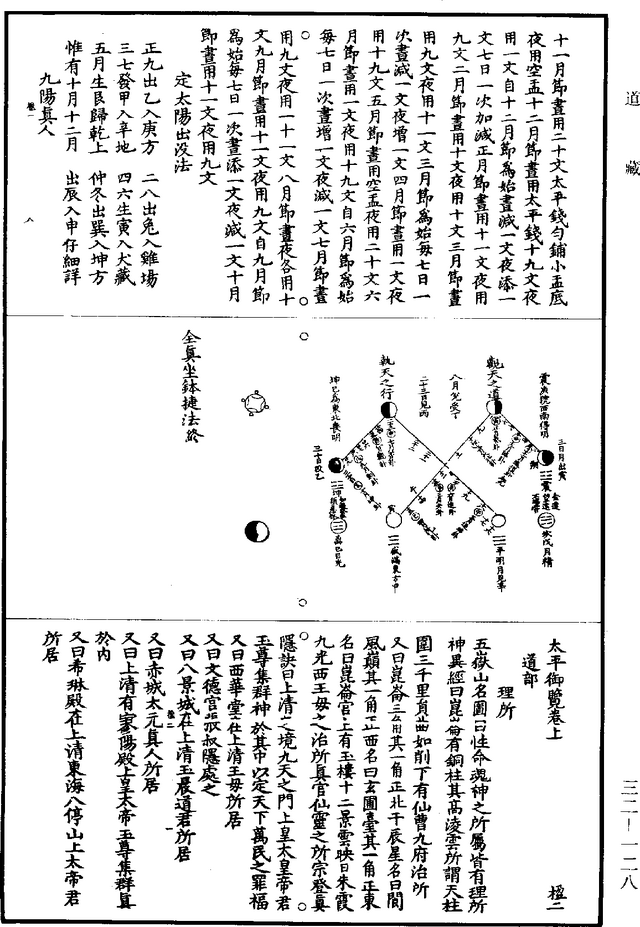 道藏
十一月節晝用二十文太平錢勻鋪小盂底
夜用空盂十二月節晝用太平錢十九文夜
用一文自十二月節為始晝減一文夜添一
文七日一次加減正月節晝用十一文夜用
九文二月節晝用十文夜用十文三月節晝
用九文夜用十一文三月節為始每七日一
次晝減一文夜增一文四月節晝用一文夜
用十九文五月節晝用空盂夜用二十文六
月節晝用一文夜用十九文自六月節為始
每七日一次晝增一文夜減一文七月節晝
用九文夜用一十一文八月節晝夜各用十
文九月節晝用十一文夜用九文自九月節
為始每七日一次晝添一文夜減一文十月
節晝用十一文夜用九文
定太陽出沒法
正九出乙入庚方 二八出兔入雞場
三七發甲入辛地 四六生寅入犬藏
五月生艮歸乾上 仲冬出巽入坤方
惟有十月十二月 出辰入申仔細詳
九陽真人
三日月出庚
觀天之道
八月兌受丁
二十三日見丙
執天之行
坤乙為東北喪明
平明月見辛
盛滿東方甲
坎戊月精
離己日光
全真坐鉢捷法終
太平御覽卷上 楹二
道部
理所
五嶽山名圖曰性命魂神之所屬皆有理所
神異經曰崑崙有銅柱其高凌雲所謂天柱
圍三千里員曲如削下有仙曹九府治所
又曰崑崙三角其一角正北干辰星名曰閬
風巔其一角正西名曰玄圃臺其一角正東
名曰崑崙宮上有玉樓十二景雲映日朱霞
九光西王母之治所真官仙靈之所宗登真
隱訣曰上清之境九天之門上皇太皇帝君
玉尊集群神於其中以定天下萬民之罪福
又曰西華堂在上清王母所居
又曰文德宮張叔隱處之
又曰八景城在上清玉晨道君所居
又曰赤城太元真人所居
又曰上清有寥陽殿上皇太帝玉尊集群真
於內
又曰希琳殿在上清東海八停山上太帝君
所居
三二—一二八